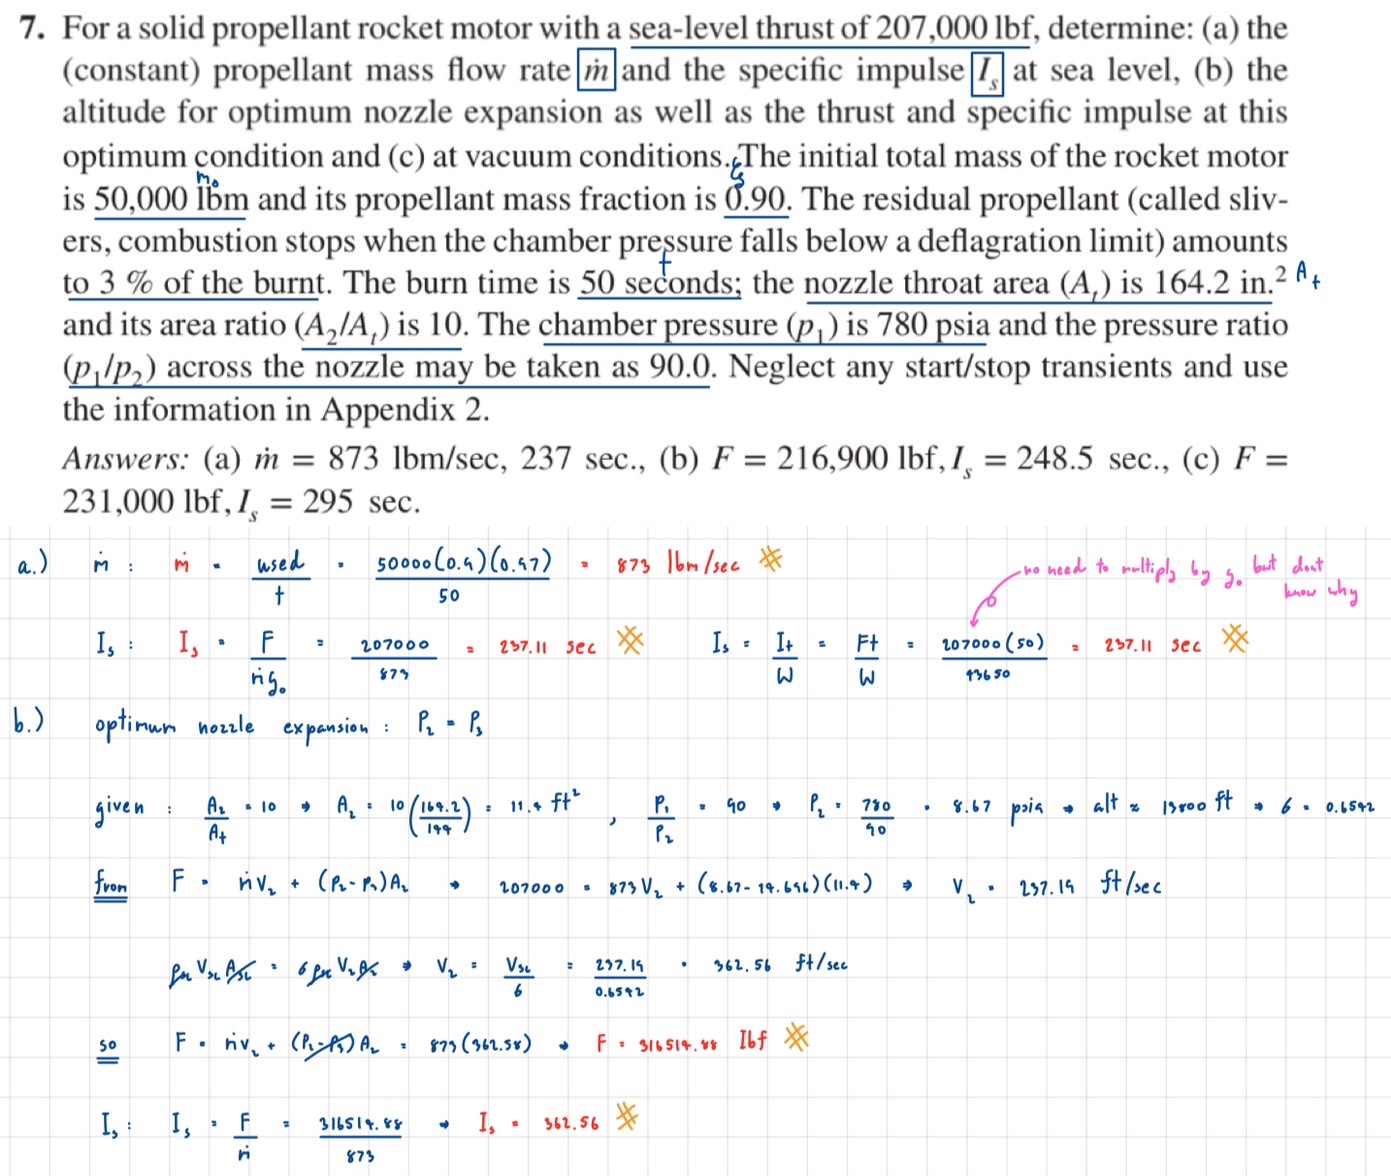 7. For a solid propellant rocket motor with a sea-level thrust of 207,000 lbf, determine: (a) the
(constant) propellant mass flow rate ṁ and the specific impulse I_s at sea level, (b) the
altitude for optimum nozzle expansion as well as the thrust and specific impulse at this
optimum condition and (c) at vacuum conditions. The initial total mass of the rocket motor
m₀ ζ
is 50,000 lbm and its propellant mass fraction is 0.90. The residual propellant (called sliv-
ers, combustion stops when the chamber pressure falls below a deflagration limit) amounts
t
to 3 % of the burnt. The burn time is 50 seconds; the nozzle throat area (A_t) is 164.2 in.² A_t
and its area ratio (A₂/A_t) is 10. The chamber pressure (p₁) is 780 psia and the pressure ratio
(p₁/p₂) across the nozzle may be taken as 90.0. Neglect any start/stop transients and use
the information in Appendix 2.
Answers: (a) ṁ = 873 lbm/sec, 237 sec., (b) F = 216,900 lbf, I_s = 248.5 sec., (c) F =
231,000 lbf, I_s = 295 sec.
a.) ṁ : ṁ = used / t = 50000(0.9)(0.97) / 50 = 873 lbm/sec
no need to multiply by g₀ but dont know why
I_s : I_s = F / ṁg₀ = 207000 / 873 = 237.11 sec I_s = I_t / W = Ft / W = 207000(50) / 43650 = 237.11 sec
b.) optimum nozzle expansion : P₂ = P₃
given : A₂ / A_t = 10 → A₂ = 10(164.2 / 144) = 11.4 ft² , P₁ / P₂ = 90 → P₂ = 780 / 90 = 8.67 psia → alt ≈ 13800 ft → 6 = 0.6542
from F = ṁV₂ + (P₂ - P₃)A₂ → 207000 = 873V₂ + (8.67 - 14.696)(11.4) → V₂ = 237.19 ft/sec
V_SL A_SL = 6 V₂ → V₂ = V_SL / 6 = 237.19 / 0.6542 = 362.56 ft/sec
so F = ṁv₂ + (P₂ - P₃)A₂ = 873(362.58) → F = 316514.88 lbf
I_s : I_s = F / ṁ = 316514.88 / 873 → I_s = 362.56